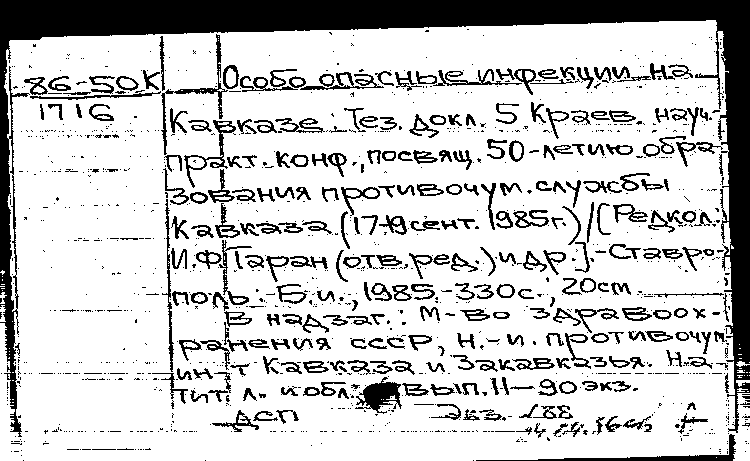 86-50К Особо опасные инфекции на
1716 Кавказе: Тез. докл. 5 Краев. науч.-
практ. конф., посвящ. 50-летию обра
зования противочум. службы
Кавказа (17-19 сент. 1985г.)/[Редкол.:
И.Ф. Таран (отв. ред.) и др.].-Ставро-
поль: Б.и., 1985.-330с.; 20см.
В надзаг.: М-во здравоох-
ранения СССР, Н.-и. противочум
ин-т Кавказа и Закавказья. На
тит. л. и обл: вып. 11-90 экз.
ДСП Экз. 188